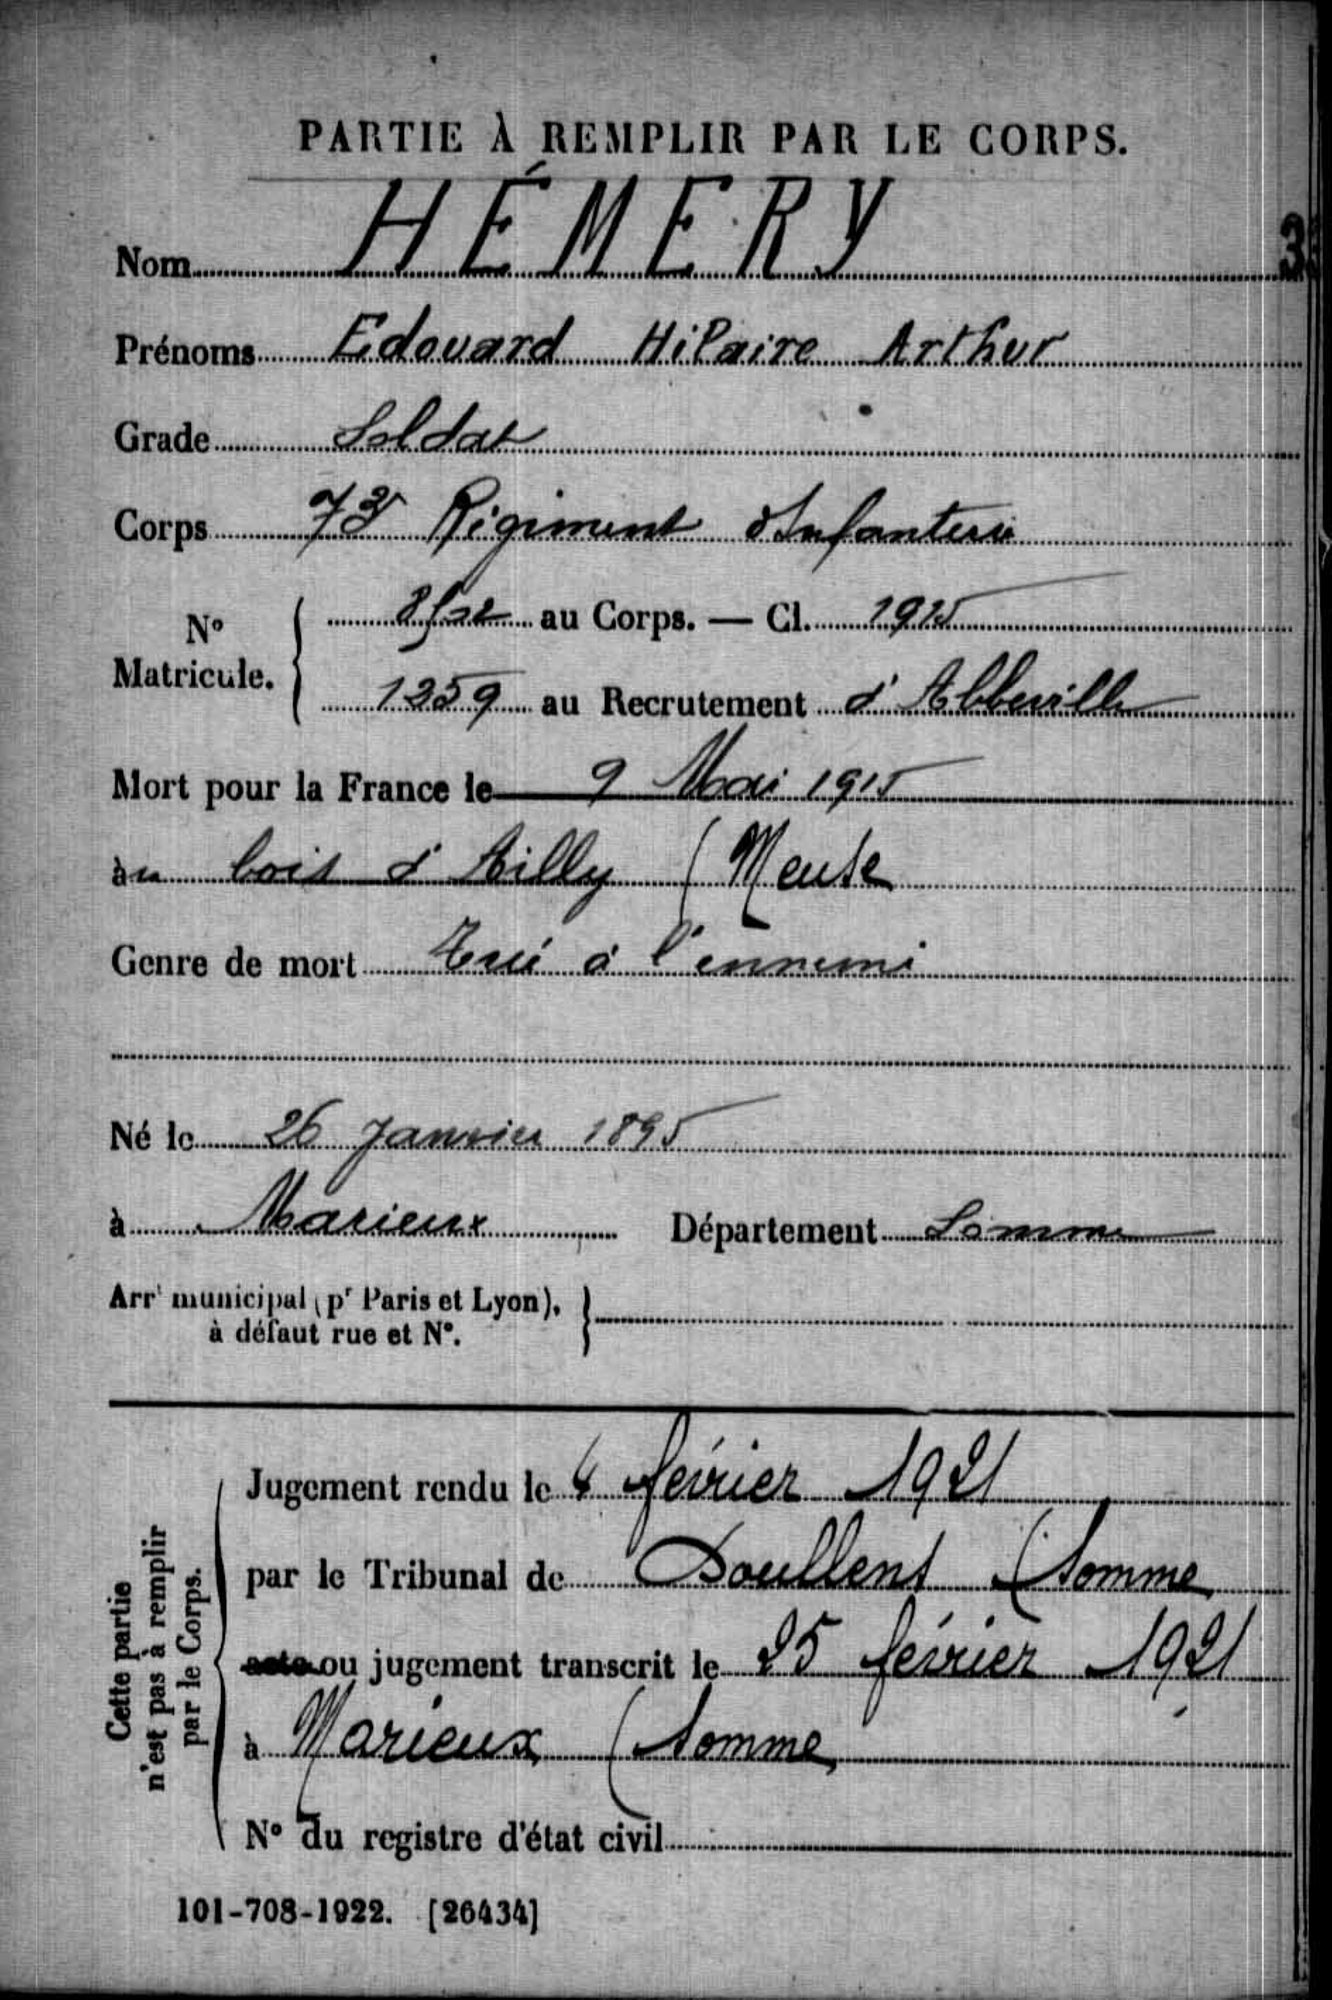 PARTIE À REMPLIR PAR LE CORPS.
Nom HÉMERY
Prénoms Edouard Hilaire Arthur
Grade Soldat
Corps 73 Régiment d'Infanterie
N° Matricule. { au Corps. — Cl. 1915
1259 au Recrutement d'Abbeville
Mort pour la France le 9 Mai 1915
au bois d'Ailly (Meuse
Genre de mort Tué à l'ennemi
Né le 26 Janvier 1895
à Marieux Département Somme
Arrt municipal (pr Paris et Lyon), }
à défaut rue et N°.
Cette partie
n'est pas à remplir
par le Corps.
Jugement rendu le février 1921
par le Tribunal de Doullens (Somme
acte ou jugement transcrit le 25 février 1921
à Marieux (Somme
N° du registre d'état civil
101-708-1922. [26434]